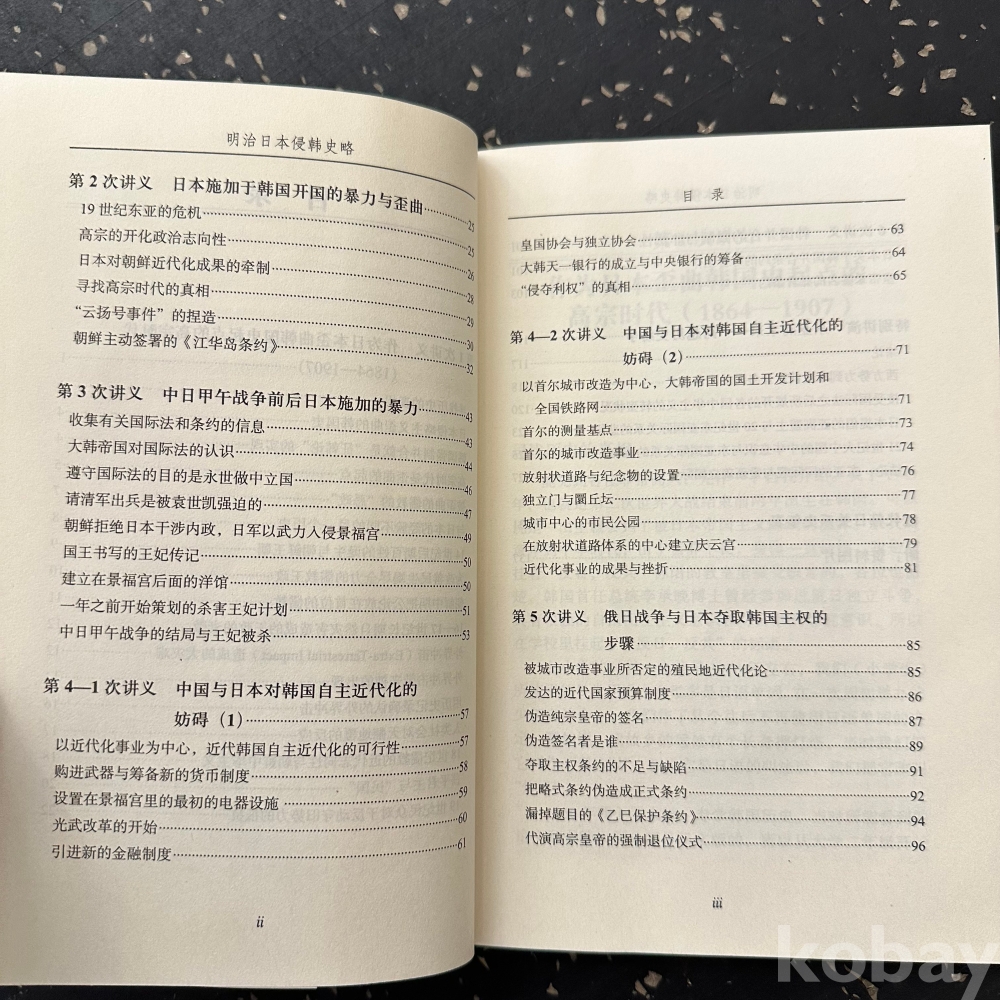 明治日本侵韩史略
第2次讲义 日本施加于韩国开国的暴力与歪曲 25
19世纪东亚的危机 25
高宗的开化政治志向性 26
日本对朝鲜近代化成果的牵制 28
寻找高宗时代的真相 29
“云扬号事件”的捏造 30
朝鲜主动签署的《江华岛条约》 32
第3次讲义 中日甲午战争前后日本施加的暴力 43
收集有关国际法和条约的信息 43
大韩帝国对国际法的认识 44
遵守国际法的目的是永世做中立国 46
请清军出兵是被袁世凯强迫的 47
朝鲜拒绝日本干涉内政，日军以武力入侵景福宫 49
国王书写的王妃传记 50
建立在景福宫后面的洋馆 50
一年之前开始策划的杀害王妃计划 51
中日甲午战争的结局与王妃被杀 53
第4—1次讲义 中国与日本对韩国自主近代化的
妨碍（1） 57
以近代化事业为中心，近代韩国自主近代化的可行性 57
购进武器与筹备新的货币制度 58
设置在景福宫里的最初的电器设施 59
光武改革的开始 60
引进新的金融制度 61
ii
目 录
皇国协会与独立协会 63
大韩天一银行的成立与中央银行的筹备 64
“侵夺利权”的真相 65
第4—2次讲义 中国与日本对韩国自主近代化的
妨碍（2） 71
以首尔城市改造为中心，大韩帝国的国土开发计划和
全国铁路网 71
首尔的测量基点 73
首尔的城市改造事业 74
放射状道路与纪念物的设置 76
独立门与圜丘坛 77
城市中心的市民公园 78
在放射状道路体系的中心建立庆云宫 79
近代化事业的成果与挫折 81
第5次讲义 俄日战争与日本夺取韩国主权的
步骤 85
被城市改造事业所否定的殖民地近代化论 85
发达的近代国家预算制度 86
伪造纯宗皇帝的签名 87
伪造签名者是谁 89
夺取主权条约的不足与缺陷 91
把略式条约伪造成正式条约 92
漏掉题目的《乙巳保护条约》 94
代演高宗皇帝的强制退位仪式 96
iii
kobay